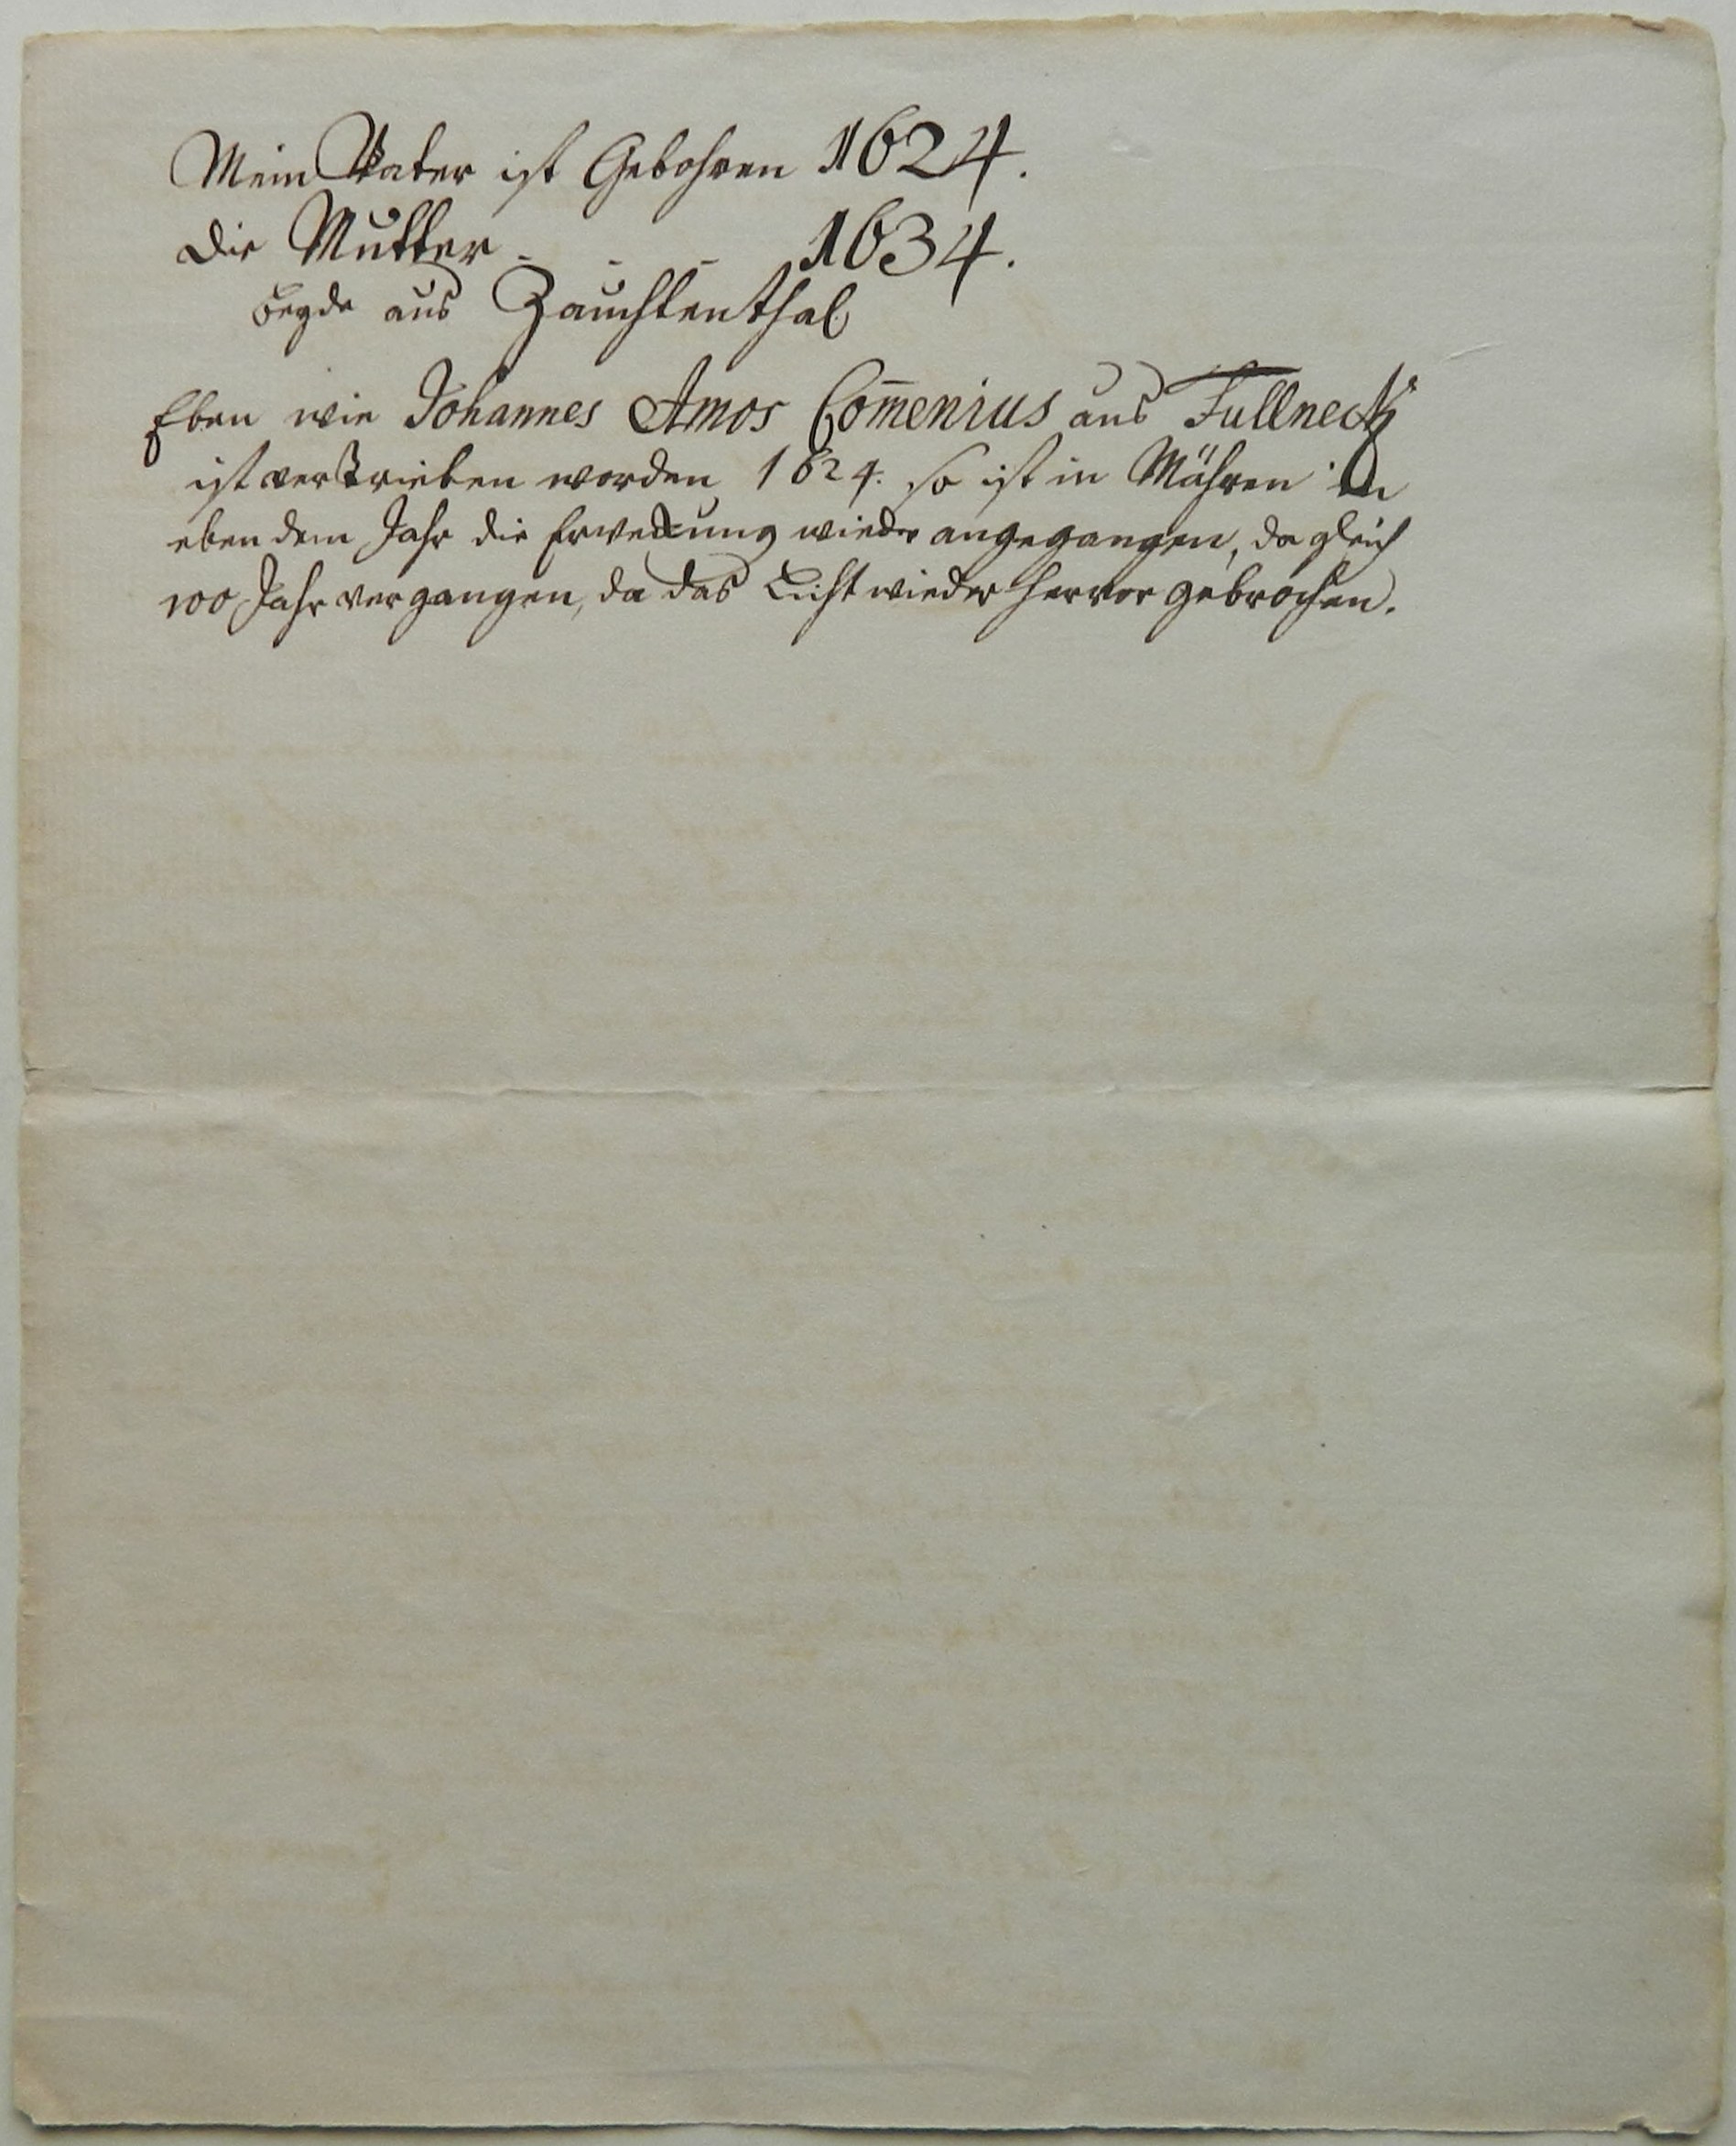 Mein Vater ist Gebohren 1624.
die Mutter - - - 1634.
beyde aus Zauchtenthal
Eben wie Johannes Amos Com̅enius aus Fullneck
ist vertrieben worden 1624. so ist in Mähren in
eben dem Jahr die Erweckung wieder angegangen, da gleich
100 Jahr vergangen, da das Licht wieder hervor gebrochen.